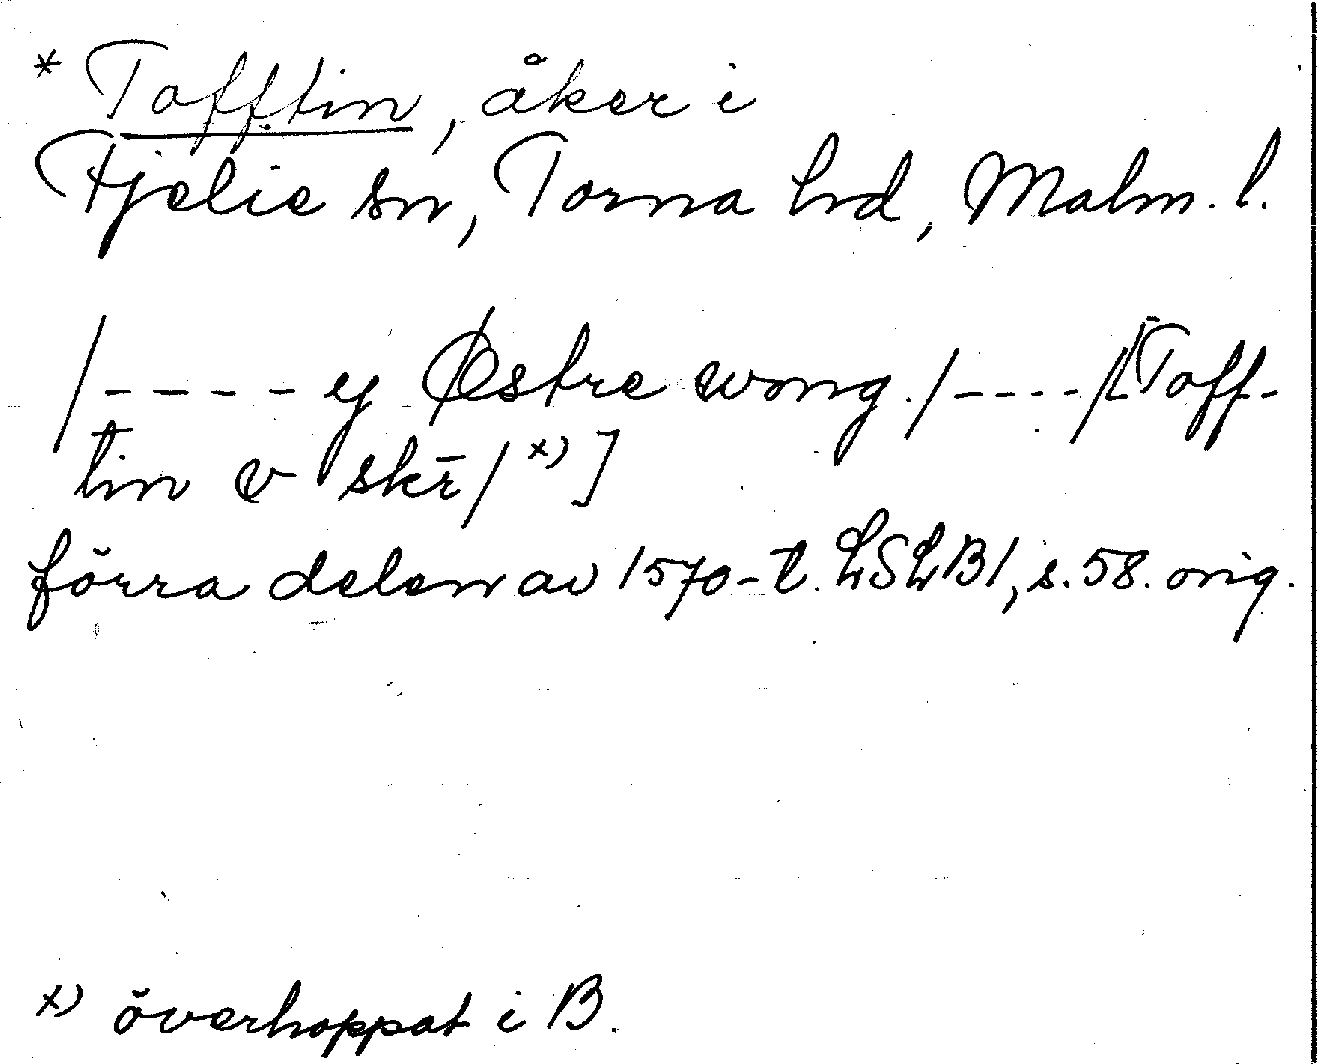 * Tofftin, åker i
Fjelie sn, Torna hd, Malm. l.
/---- ej Østre wong./----/[Toff-
tin v skē/ x)]
förra delen av 1570-t. LSLB1, s. 58. orig.
x) överhoppat i B.